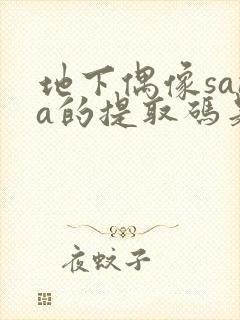 地下偶像sa
a的提取码
夜蚊子